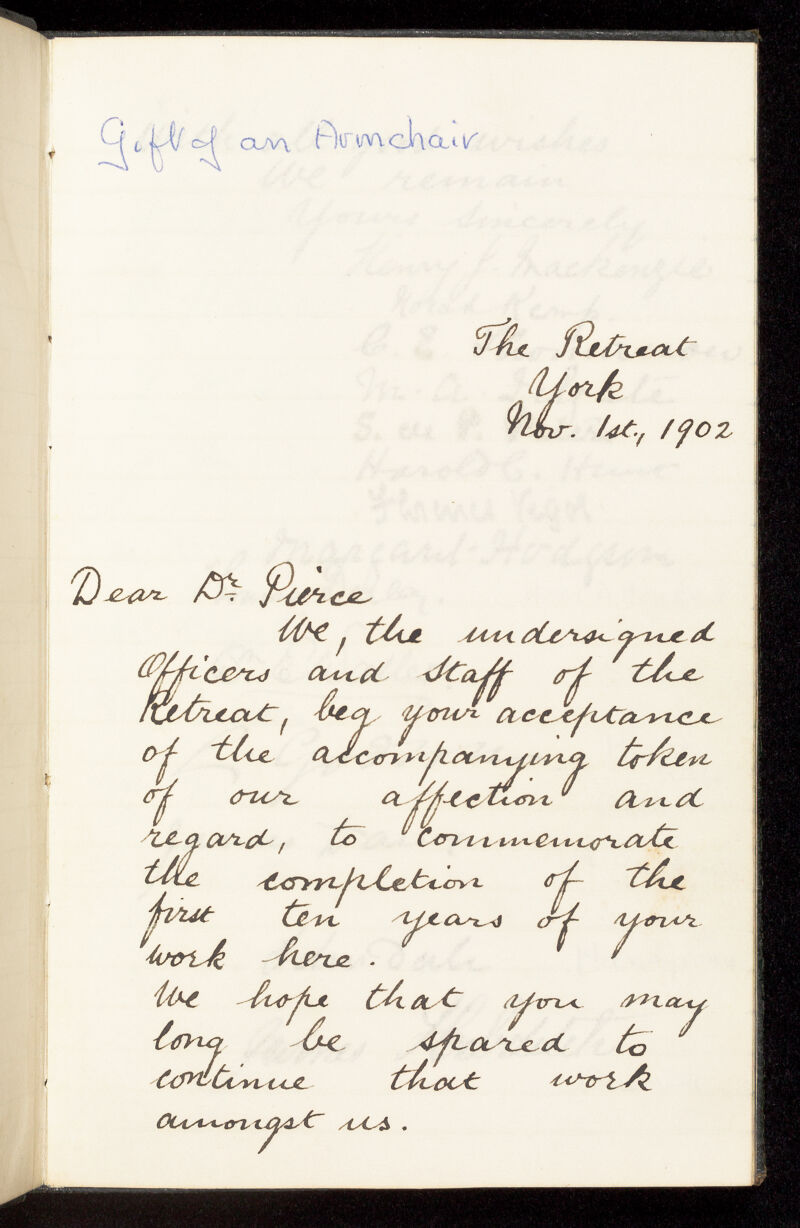 Gift of an Armchair
The Retreat
York
Nov. 1st., 1902
Dear Dr. Pierce
We, the undersigned
Officers and Staff of the
Retreat, beg your acceptance
of the accompanying token
of our affection and
regard, to commemorate
the completion of the
first ten years of your
work here.
We hope that you may
long be spared to
continue that work
amongst us.